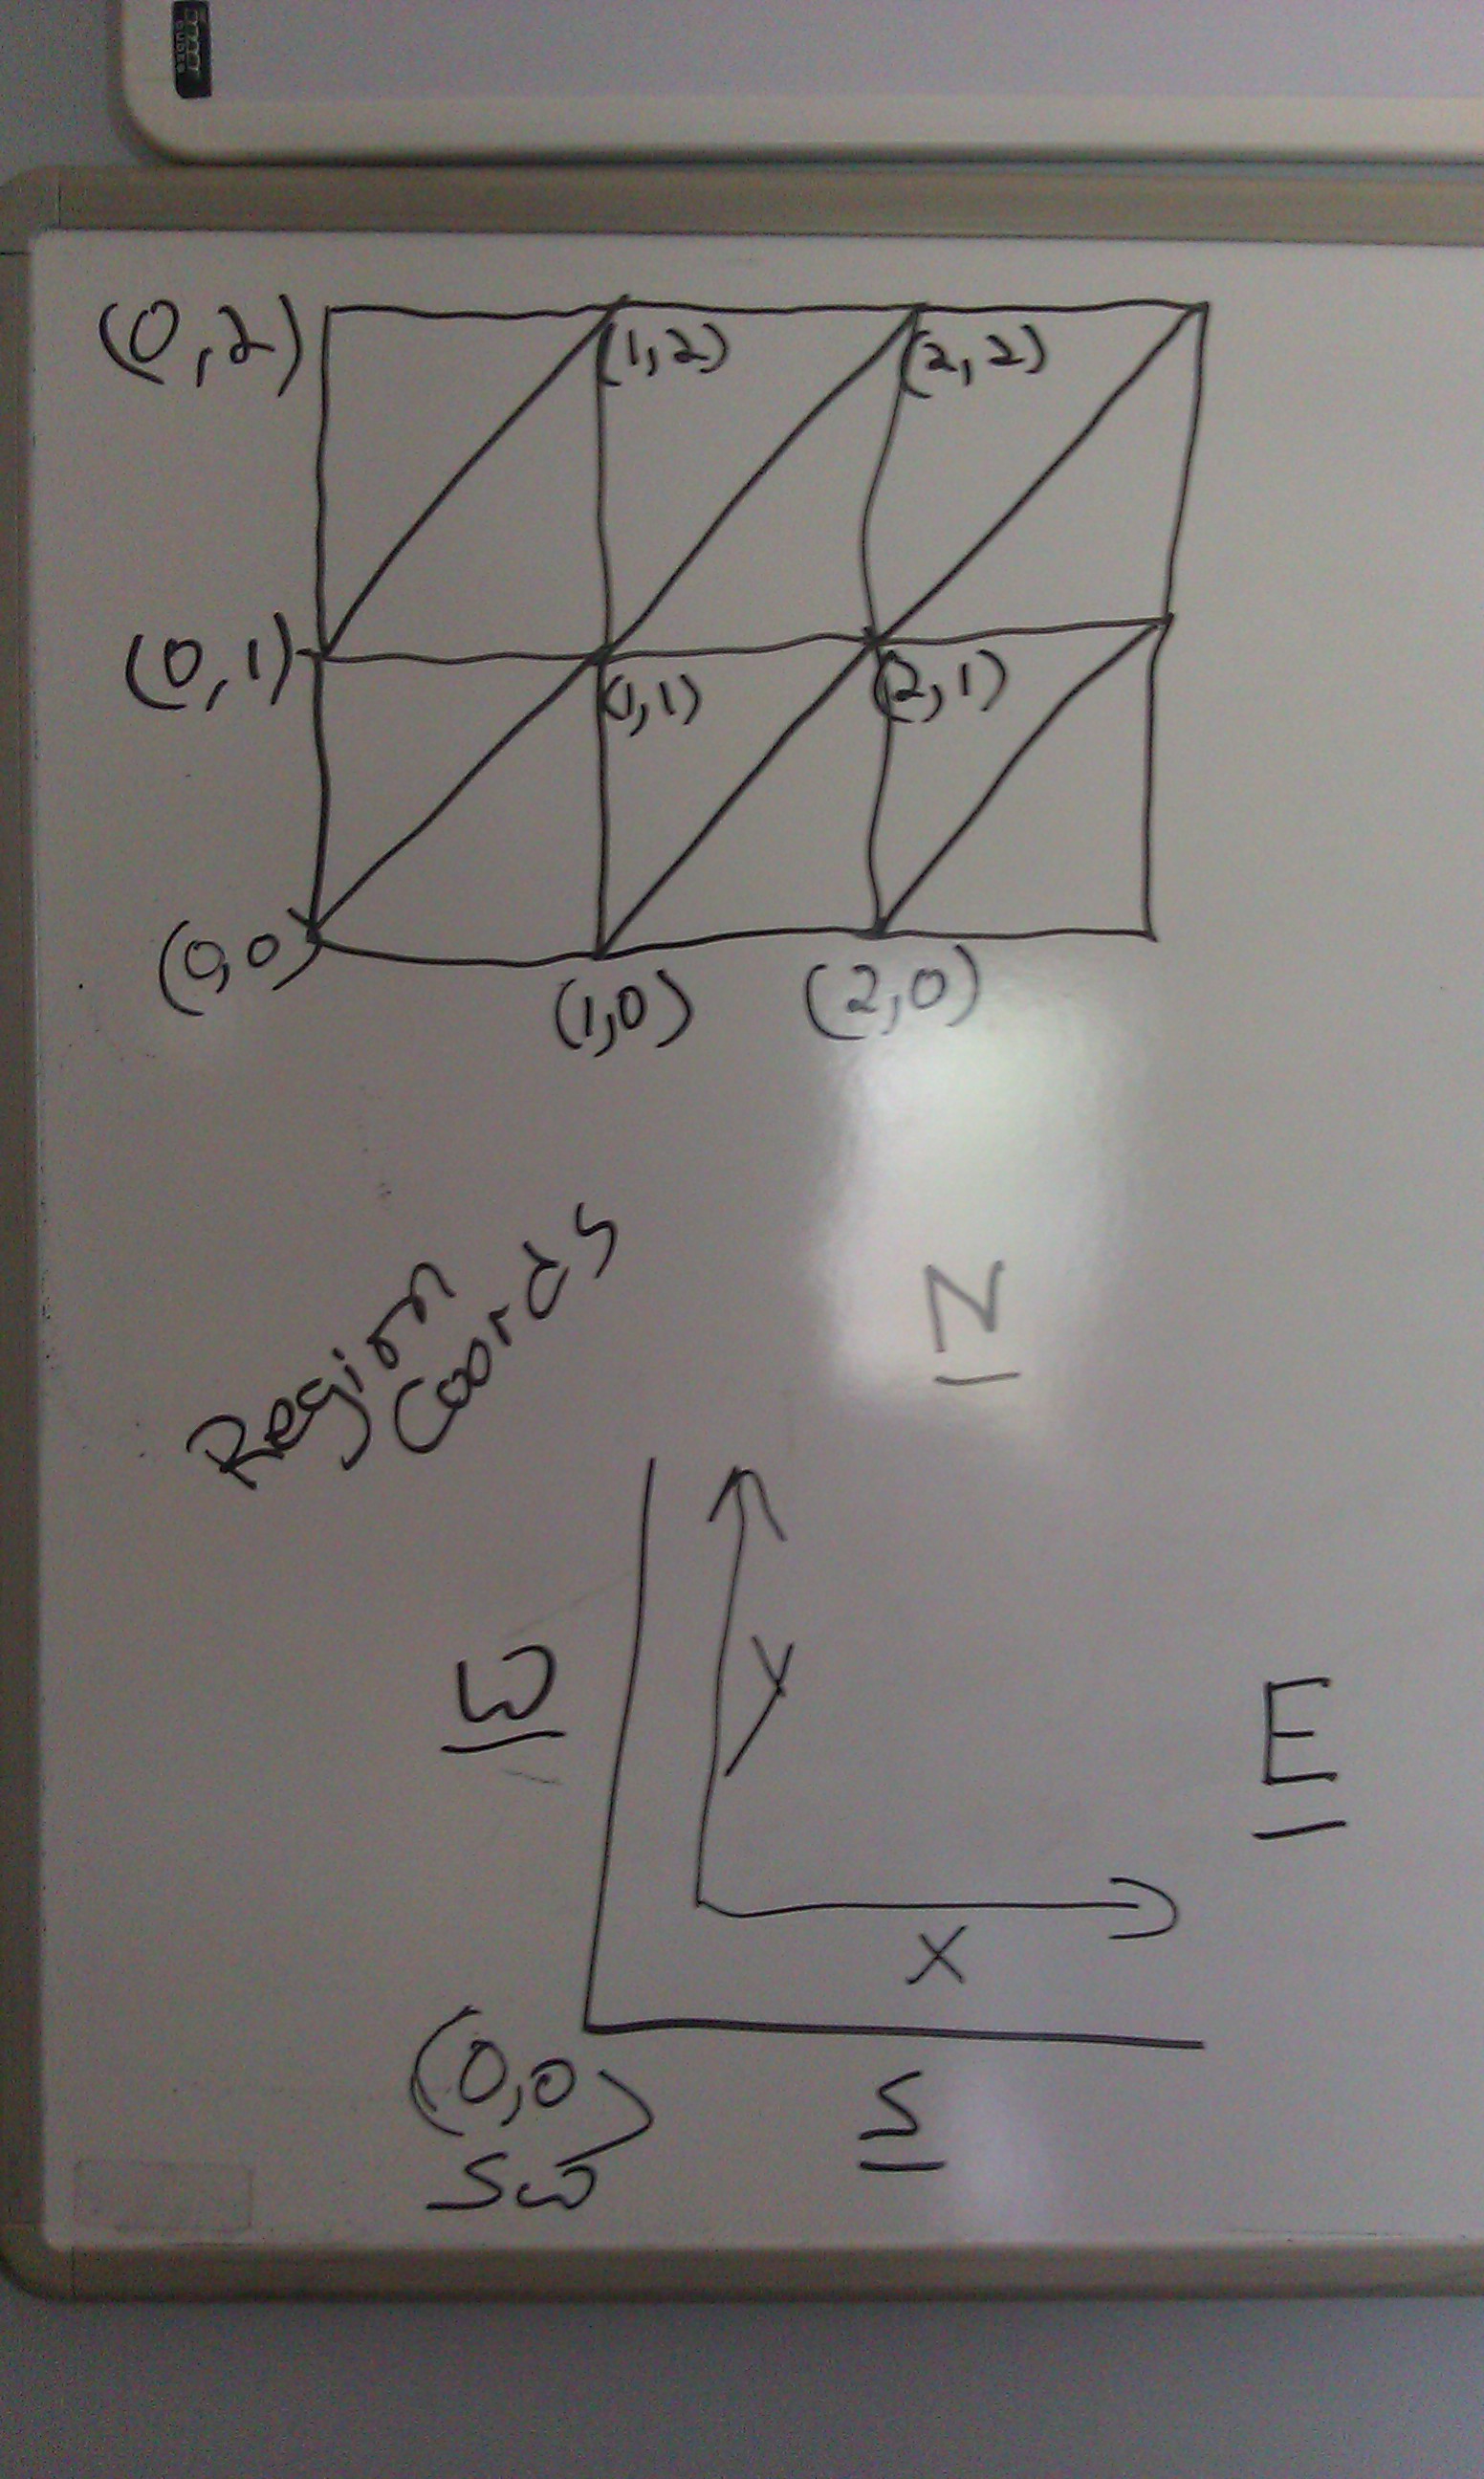 (0,2)
(1,2)
(2,2)
(0,1)
(1,1)
(2,1)
(0,0)
(1,0)
(2,0)
Region
Coords
N
W
Y
E
X
(0,0)
SW
S